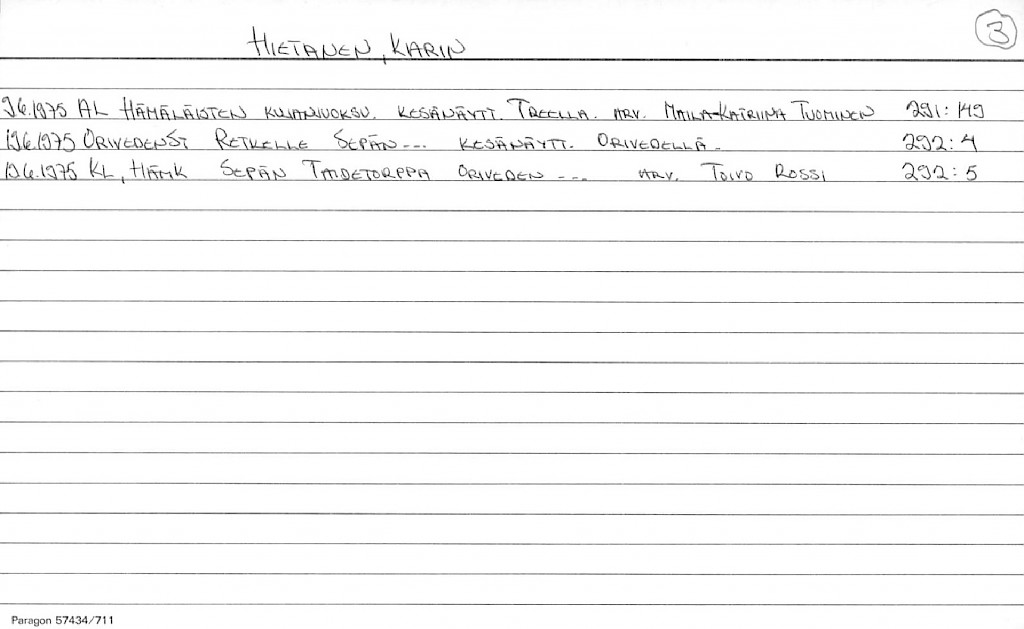 3
HIETANEN, KARIN
9.6.1975 AL HÄMÄLÄISTEN KUJANJUOKSU. KESÄNÄYTT. TREELLA. ARV. MAILA-KATRIINA TUOMINEN 291:149
19.6.1975 ORIVEDENST RETKELLE SEPÄN--- KESÄNÄYTT. ORIVEDELLÄ-
19.6.1975 KL, HÄMK SEPÄN TAIDETORPPA ORIVEDEN --- ARV. TOIVO ROSSI 292:5
292:4
Paragon 57434/711